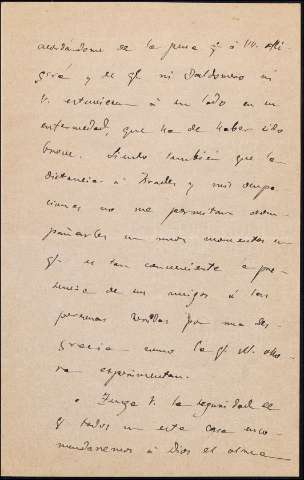 acordándome de la pena q. á VV. afli-
giría y de q. ni Baldomero ni
V. estuvieron á su lado en su
enfermedad, que ha de haber sido
breve. Siento también que la
distancia á y mis ocupa-
ciones no me permitan acom-
pañarles en unos momentos en
q. es tan conveniente la pre-
sencia de un amigo á las
personas por una des-
gracia como la q. VV. aho-
ra experimentan.
Tenga V. la seguridad de
q. todos en esta casa enco-
mendaremos á Dios el alma